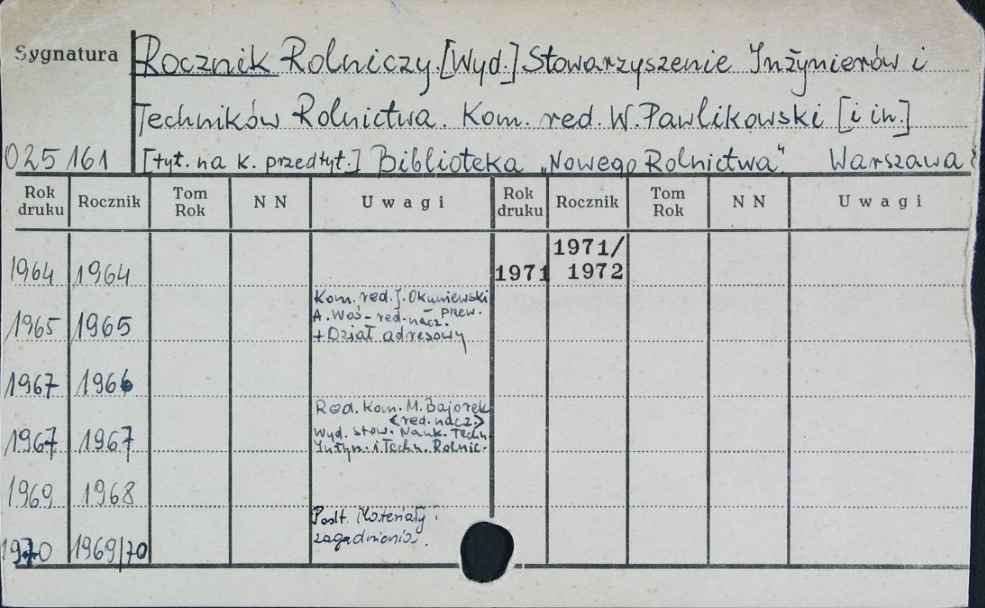 Sygnatura Rocznik Rolniczy. [Wyd.] Stowarzyszenie Inżynierów i
Techników Rolnictwa. Kom. red. W. Pawlikowski [i in.]
025161 [tyt. na k. przedtyt.] Biblioteka „Nowego Rolnictwa" Warszawa
Rok druku Rocznik Tom Rok N N Uwagi Rok druku Rocznik Tom Rok N N Uwagi
1964 1964 1971 1971/1972
Kom. red. J. Okuniewski
– przew.
A. Woś – red. nacz.
1965 1965 + Dział adresowy
1967 1966
Red. Kom. M. Bajorek
<red. nacz>
Wyd. Stow. Nauk. Techn.
1967 1967 Inżyn. i Techn. Rolnic.
1969 1968
Podt. Materiały i
1970 1969/70 zagadnienia.